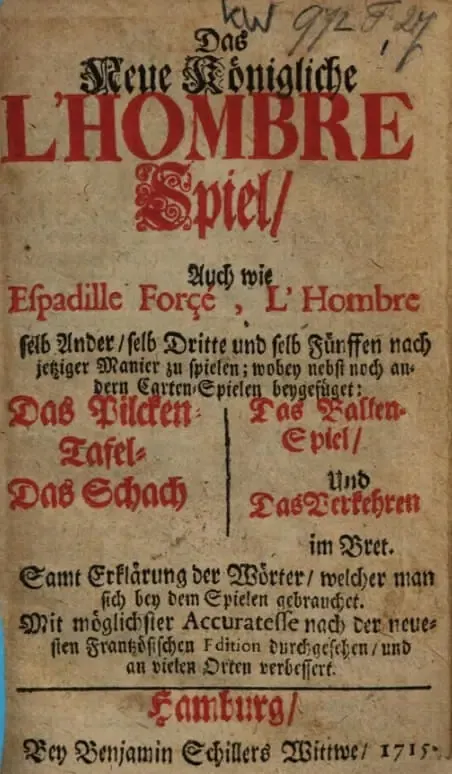 kW 972 F. 27
Das
Neue Königliche
L'HOMBRE
Spiel/
Auch wie
Eſpadille Forçe , L' Hombre
ſelb Ander/ ſelb Dritte und ſelb Fünffen nach
jetziger Manier zu ſpielen; wobey nebſt noch an-
dern Carten-Spielen beygefüget:
Das Pilcken-
Tafel-
Das Schach
Das Ballen-
Spiel/
Und
Das Verkehren
im Bret.
Samt Erklärung der Wörter/ welcher man
ſich bey dem Spielen gebrauchet.
Mit möglichſter Accurateſſe nach der neue-
ſten Frantzöſiſchen Edition durchgeſehen/ und
an vielen Orten verbeſſert.
Hamburg/
Bey Benjamin Schillers Wittwe/ 1715.